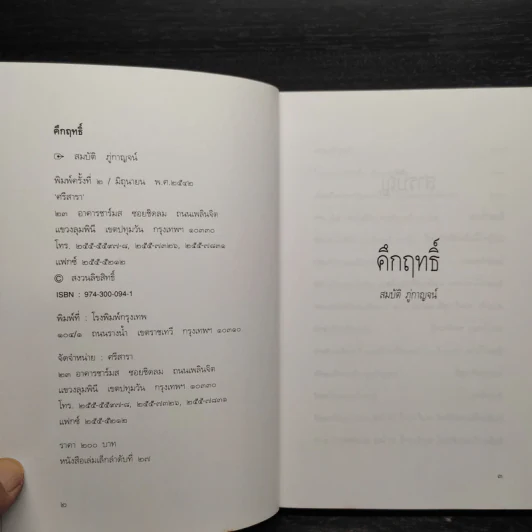 คึกฤทธิ์
สมบัติ ภู่กาญจน์
พิมพ์ครั้งที่ ๒ / มิถุนายน พ.ศ.๒๕๔๒
'ศรีสารา'
๒๓ อาคารชาร์มส ซอยชิดลม ถนนเพลินจิต
แขวงลุมพินี เขตปทุมวัน กรุงเทพฯ ๑๐๓๓๐
โทร. ๒๕๕-๕๕๙๗-๘, ๒๕๕-๗๓๒๖, ๒๕๕-๗๘๓๑
แฟกซ์ ๒๕๕-๕๒๑๒
© สงวนลิขสิทธิ์
ISBN : 974-300-094-1
พิมพ์ที่ : โรงพิมพ์กรุงเทพ
๑๐๔/๑ ถนนรางน้ำ เขตราชเทวี กรุงเทพฯ ๑๐๓๑๐.
จัดจำหน่าย : ศรีสารา
๒๓ อาคารชาร์มส ซอยชิดลม ถนนเพลินจิต
แขวงลุมพินี เขตปทุมวัน กรุงเทพฯ ๑๐๓๓๐
โทร. ๒๕๕-๕๕๙๗-๘, ๒๕๕-๗๓๒๖, ๒๕๕-๗๘๓๑
แฟกซ์ ๒๕๕-๕๒๑๒
ราคา ๒๐๐ บาท
หนังสือเล่มเล็กลำดับที่ ๒๗
๒
คึกฤทธิ์
สมบัติ ภู่กาญจน์
๓